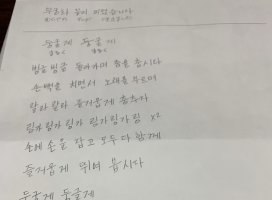 무궁화 꽃이 피었습니다
둥글게 둥글게
빙글 빙글 돌아가며 춤을 춥시다
손뼉을 치면서 노래를 부르며
랄라랄라 즐거웁게 춤추자
링가링가링가 링가링가링 x2
손에 손을 잡고 모두 다 함께
즐거웁게 뛰어 봅시다
둥글게 둥글게